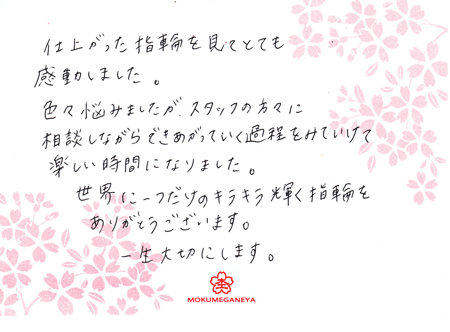 仕上がった指輪を見てとても
感動しました。
色々悩みましたが、スタッフの方々に
相談しながらできあがっていく過程をみていけて
楽しい時間になりました。
世界に一つだけのキラキラ輝く指輪を
ありがとうございます。
一生大切にします。
MOKUMEGANEYA